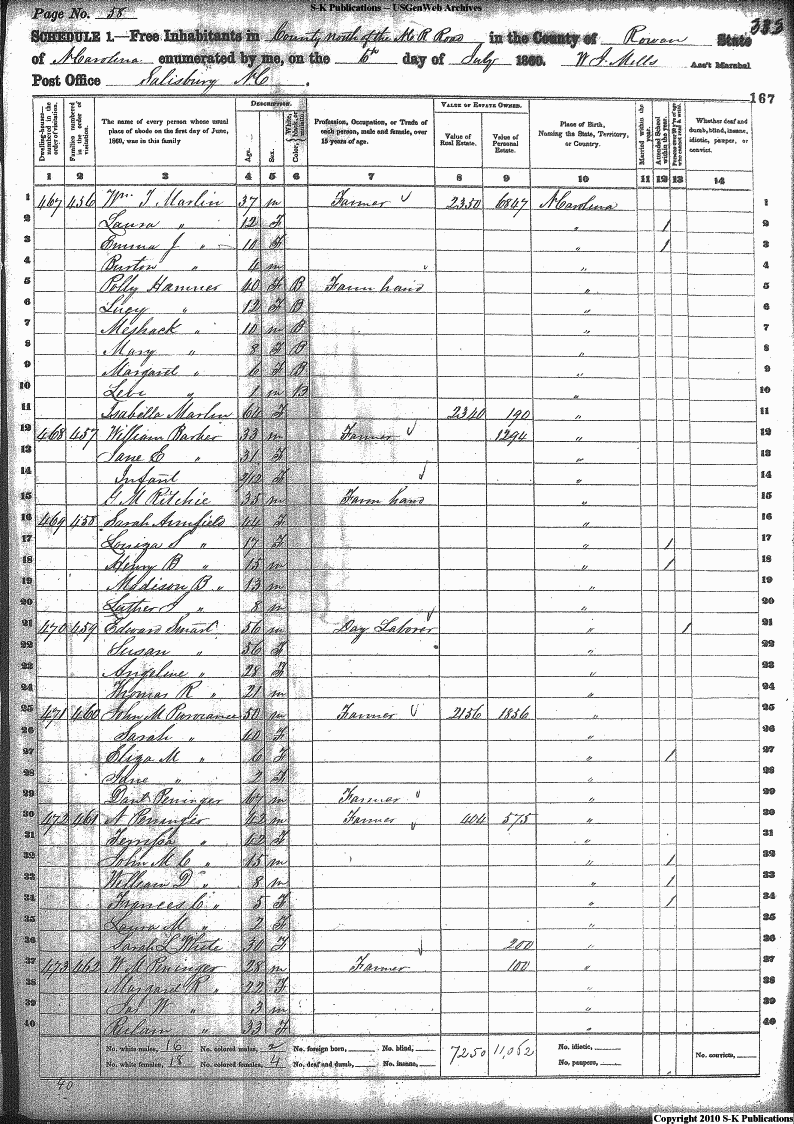 S-K Publications – USGenWeb Archives
Page No. 58
383
SCHEDULE 1.—Free Inhabitants in County north of the N C R Road in the County of Rowan State
of N Carolina enumerated by me, on the 6th day of July 1860. Ass't Marshal
Post Office Salisbury N C.
167
Dwelling-houses—numbered in the order of visitation.
Families numbered in the order of visitation.
The name of every person whose usual place of abode on the first day of June, 1860, was in this family
Description.
Age.
Sex.
Profession, Occupation, or Trade of each person, male and female, over 15 years of age.
Value of Estate Owned.
Value of Real Estate.
Value of Personal Estate.
Place of Birth, Naming the State, Territory, or Country.
Married within the year.
Attended School within the year.
Whether deaf and dumb, blind, insane, idiotic, pauper, or convict.
1 2 3 4 5 6 7 8 9 10 11 12 13 14
1 467 456 Wm T Marlin 37 m Farmer 2350 6847 N Carolina 1
2 Laura " 12 F " / 2
3 Emma J " 10 F " / 3
4 Burton " 4 m " 4
5 Polly Hammer 40 F B Farm hand " 5
6 Lucy " 12 F B " 6
7 Meshack " 10 m B " 7
8 Mary " 8 F B " 8
9 Margaret " 6 F B " 9
10 Levi " 1 m B " 10
11 Isabella Marlin 64 F 2340 190 " 11
12 468 457 William Barber 33 m Farmer 1294 " 12
13 Jane C " 31 F " 13
14 Infant F " 14
15 G M Ritchie 35 m Farm hand " 15
16 469 458 Sarah Armfield 44 F " 16
17 Louiza " 17 F " / 17
18 Henry B " 15 m " / 18
19 Madison B " 13 m " 19
20 Luther " 8 m " 20
21 470 459 Edward Smart 56 m Day Laborer " / 21
22 Susan " 56 F " 22
23 Angeline " 28 F " 23
24 Thomas R " 21 m " 24
25 471 460 John M 50 m Farmer 2156 1856 " 25
26 Sarah " 40 F " 26
27 Eliza M " 6 F " / 27
28 Jane " 2 F " 28
29 Peninger 67 m Farmer " 29
30 472 461 Peninger 42 m Farmer 404 575 " 30
31 " 42 F " 31
32 John M C " 15 m " / 32
33 William D " 8 m " / 33
34 Frances C " 5 F " / 34
35 Laura M " 2 F " 35
36 Sarah L White 30 F 200 " 36
37 473 462 W M Peninger 28 m Farmer 100 " 37
38 Margaret R " 22 F " 38
39 Jas W " 3 m " 39
40 " 33 F " 40
No. white males, 16 No. colored males, 2 No. foreign born, No. blind, 7250 11,062 No. idiotic, No. convicts,
No. white females, 18 No. colored females, 4 No. deaf and dumb, No. insane, No. paupers,
40
Copyright 2010 S-K Publications